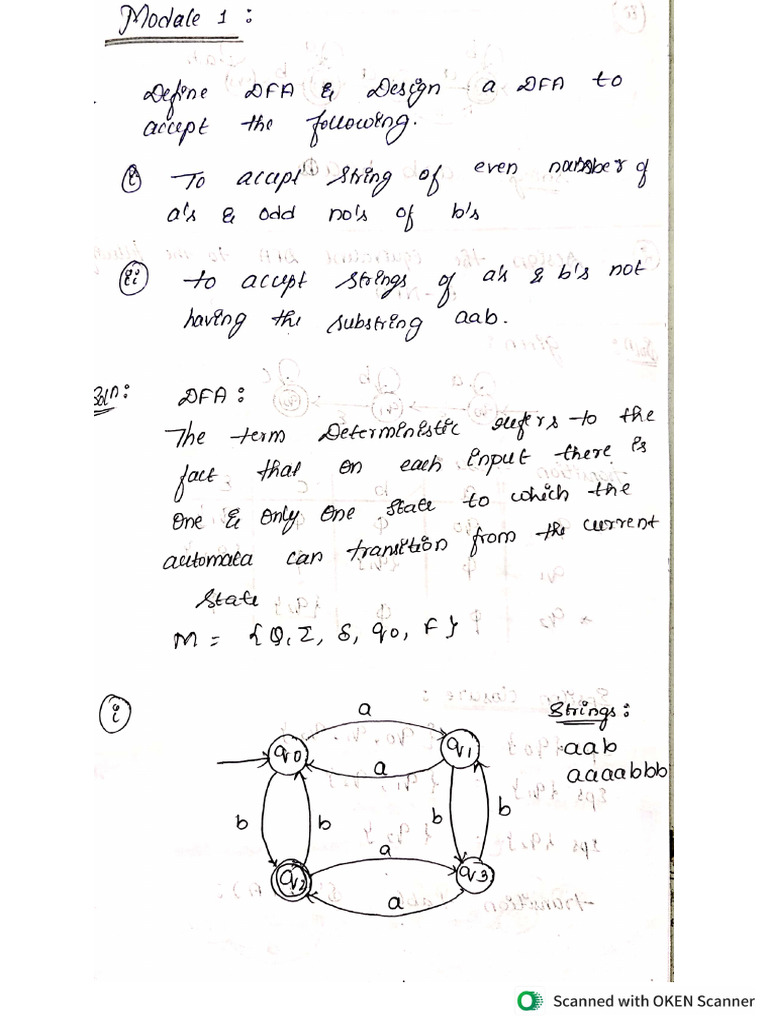 Module 1 :
Define DFA & Design a DFA to
accept the following.
(i) To accept string of even number of
a's & odd no's of b's
(ii) to accept strings of a's & b's not
having the substring aab.
Soln: DFA :
The term Deterministic refers to the
fact that on each input there is
one & only one state to which the
automata can transition from the current
state
M = {Q, Σ, δ, q0, F}
(i)
Strings :
aab
aaaabbb
a
q0
q1
a
b
b
b
b
a
q2
q3
a
Scanned with OKEN Scanner